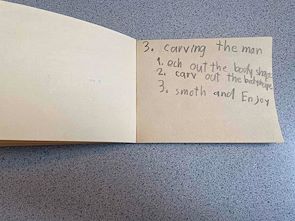 3. Carving the man
1. ech out the boody shape
2. carv out the bodyshape
3. smoth and Enjoy